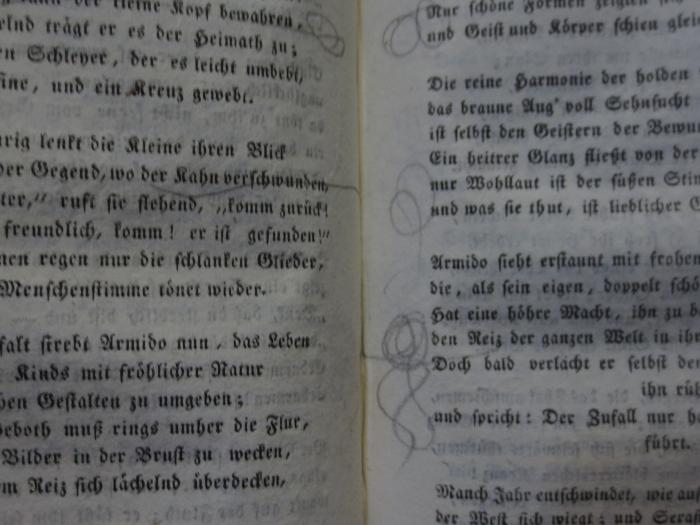 der kleine Kopf bewahren,
trägt er es der Heimath zu;
Schleyer, der es leicht umbebt,
und ein Kreuz gewebt.
lenkt die Kleine ihren Blick
der Gegend, wo der Kahn verschwunden,
ruft sie flehend, „komm zurück!
freundlich, komm! er ist gefunden!“
regen nur die schlanken Glieder,
Menschenstimme tönet wieder.
strebt Armido nun, das Leben
Kinds mit fröhlicher Natur
Gestalten zu umgeben;
muß rings umher die Flur,
Bilder in der Brust zu wecken,
Reiz sich lächelnd überdecken,
Nur schöne Formen zeigten
und Geist und Körper schien
Die reine Harmonie der holden
das braune Aug' voll Sehnsucht
ist selbst den Geistern der
Ein heitrer Glanz fließt von der
nur Wohllaut ist der süßen
und was sie thut, ist lieblicher
Armido sieht erstaunt mit frohem
die, als sein eigen, doppelt
Hat eine höhre Macht, ihn zu
den Reiz der ganzen Welt in
Doch bald verlacht er selbst
ihn
und spricht: Der Zufall nur
führt.
Manch Jahr entschwindet, wie
der West sich wiegt; und